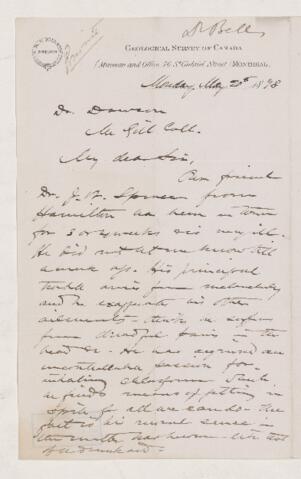 Dr Bell
Private
GEOLOGICAL SURVEY OF CANADA
(Museum and Office, 76 St Gabriel Street) MONTREAL,
Monday, May 20th 1878
Dr. Dawson
McGill Coll.
My dear Sir,
Our friend
Dr. J. W. Spencer from
Hamilton has been in town
for 3 or 4 weeks very ill.
He did not let me know till
a week ago. His principal
trouble arises from melancholy
and he exaggerates his other
ailments - he suffers
from dreadful pains in the
head &c. He has acquired an
uncontrollable passion for
inhaling chloroform which
he finds means of getting in
spite of all we can do - the
fact is his moral sense in
this matter has become - like that
of a drunkard -